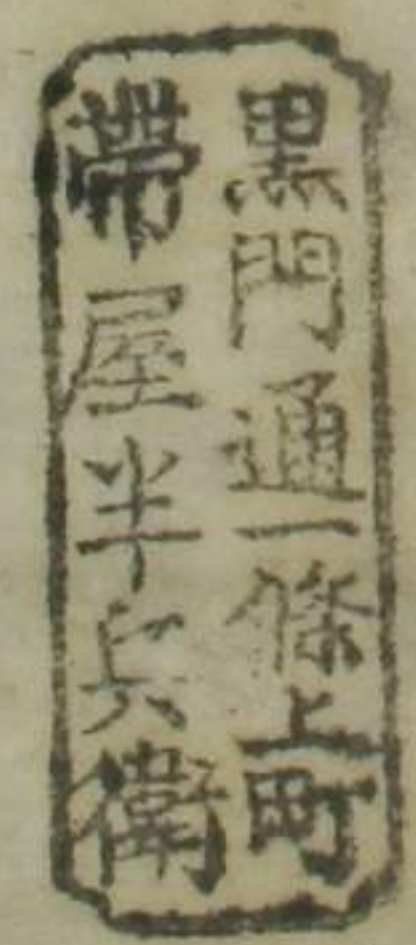 黒門通一條上町
帶屋半兵衛